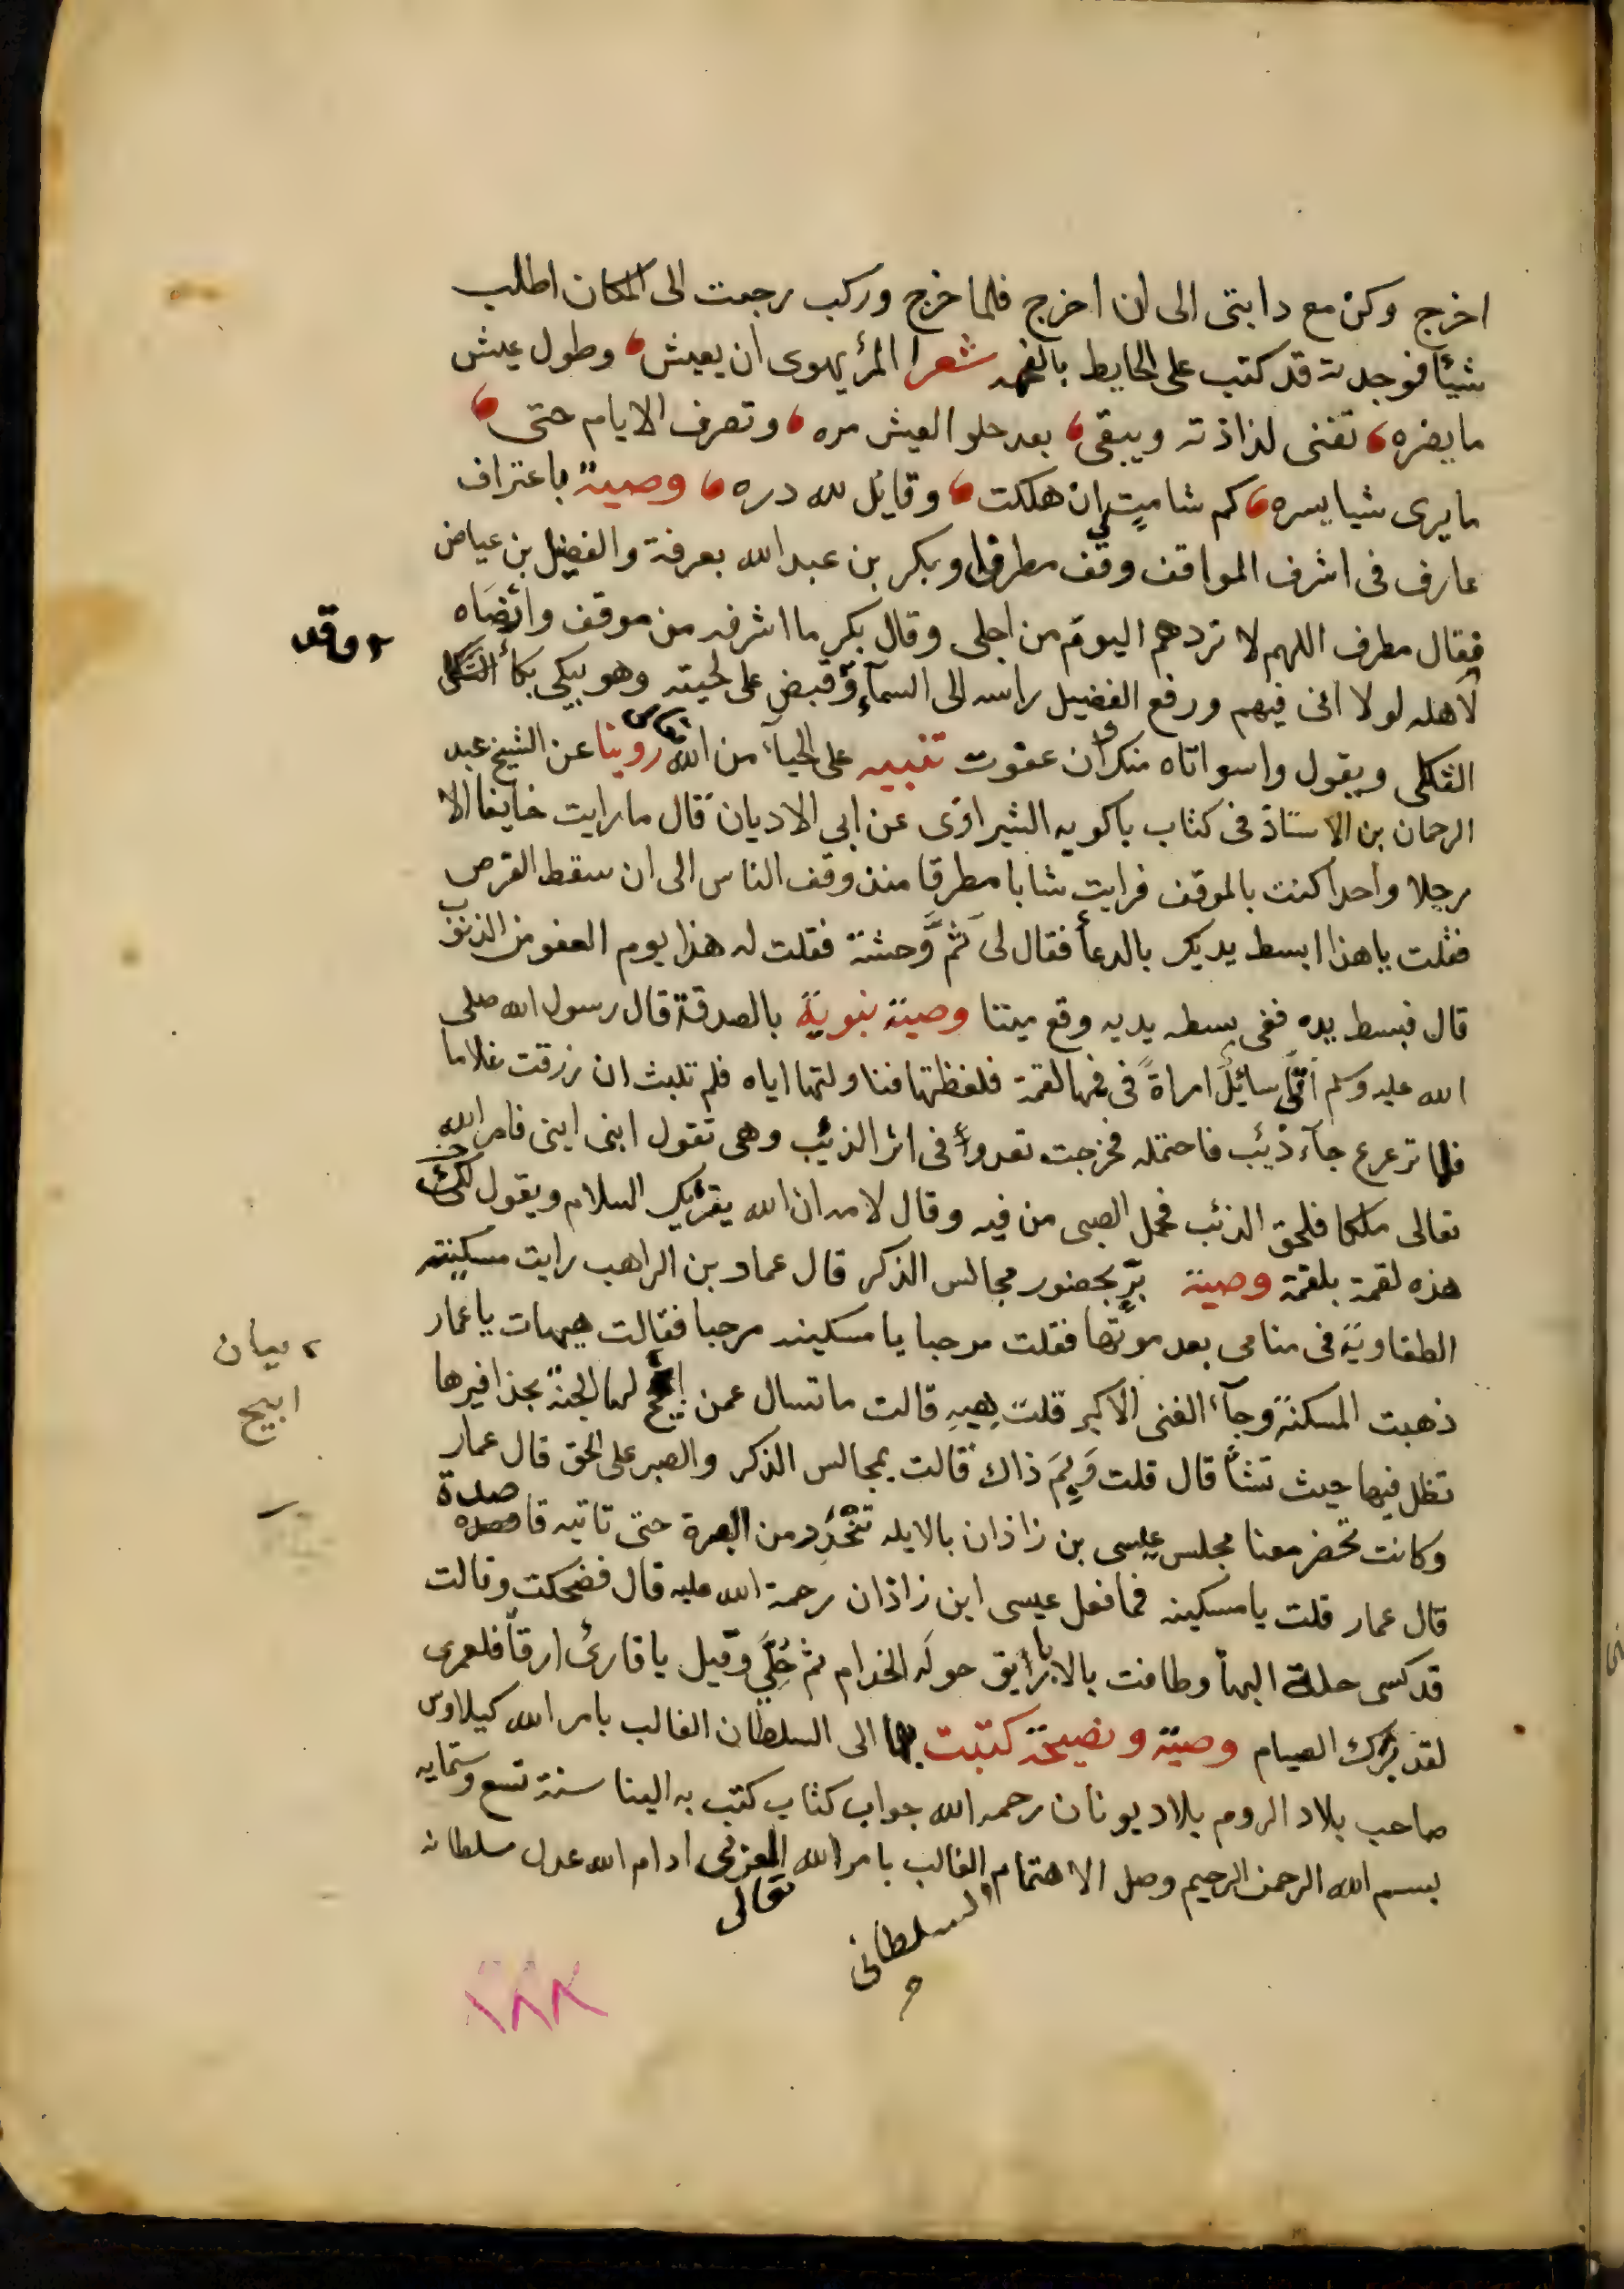 اخرج وكن مع دابتى الى ان اخرج فلما خرج وركب رجعت الى المكان اطلب
شيئا فوجدته قد كتب على الحايط بالفحمه شعرا المرٔ يهوى ان يعيش ، وطول عيش
ما يضره ، تفنى لذاذته ويبقى ، بعد حلو العيش مره ، وتصرف الايام حتى ،
ما يرى شيا يسره ، كم شامتٍ بى ان هلكت ، وقائل لله دره ، وصية باعتراف
عارف فى اشرف المواقف وقف مطرف وبكر بن عبدالله بعرفة والفضيل بن عياض
فقال مطرف اللهم لا تردهم اليوم من اجلى وقال بكر ما اشرفه من موقف وارضاه
لاهله لولا انى فيهم ورفع الفضيل راسه الى السمآء وقبض على لحيته وهو يبكى بكأ
وقد
الثكلى ويقول واسواتاه منك وان عفوت تنبيه على الحيآء من الله روينا عن الشيخ عبد
الرحمان بن الاستاذ فى كتاب باكويه الشيرازى عن ابى الاديان قال ما رايت خايفا الا
رجلا واحدا كنت بالموقف فرايت شابا مطرقا منذ وقف الناس الى ان سقط القرص
فقلت يا هذا ابسط يديك بالدعأ فقال لى ثَمَّ وَحشة فقلت له هذا يوم العفو من الذنوب
قال فبسط يده ففى بسطه يديه وقع ميتا وصية نبوية بالصدقة قال رسول الله صلى
الله عليه وسلم اتى سائل امراة فى فمها لقمة فلفظتها فناولتها اياه فلم تلبث ان رزقت غلاما
فلما ترعرع جآء ذئب فاحتمله فخرجت تعدوا فى اثر الذئب وهى تقول ابنى ابنى فامر الله
تعالى ملكا فلحق الذئب فحمل الصبى من فيه وقال لامه ان الله يقرئك السلام ويقول لكى
هذه لقمة بلقمة وصية بِرٍّ بحضور مجالس الذكر قال عماد بن الراهب رايت مسكينة
الطفاوية فى منامى بعد موتها فقلت مرحبا يا مسكينه مرحبا فقالت هيهات يا عمار
بيان
ابيح
ذهبت المسكنة وجآء الغنى الاكبر قلت هِيهِ قالت ما تسال عمن ابيح لها الجنة بحذافيرها
تظل فيها حيث تشأ قال قلت وَبِمَ ذاك قالت بمجالس الذكر والصبر على الحق قال عمار
وكانت تحضر معنا مجلس عيسى بن زاذان بالابله تَنْحَدِر من البصرة حتى تاتيه قاصدة
قال عمار قلت يا مسكينه فما فعل عيسى ابن زاذان رحمة الله عليه قال فضحكت وقالت
قد كسى حلة البهأ وطافت بالاباريق حوله الخدام ثم حُلِّىَ وقيل يا قارئ ارقأ فلعمرى
لقد برك الصيام وصية ونصيحة كتبت بها الى السلطان الغالب بامر الله كيلاوس
صاحب بلاد الروم بلاد يونان رحمه الله جواب كتاب كتب به الينا سنة تسع وستمايه
بسم الله الرحمن الرحيم وصل الاهتمام الغالب بامر الله العزى ادام الله عدل سلطانه
السلطانى
تعالى
١٨٨